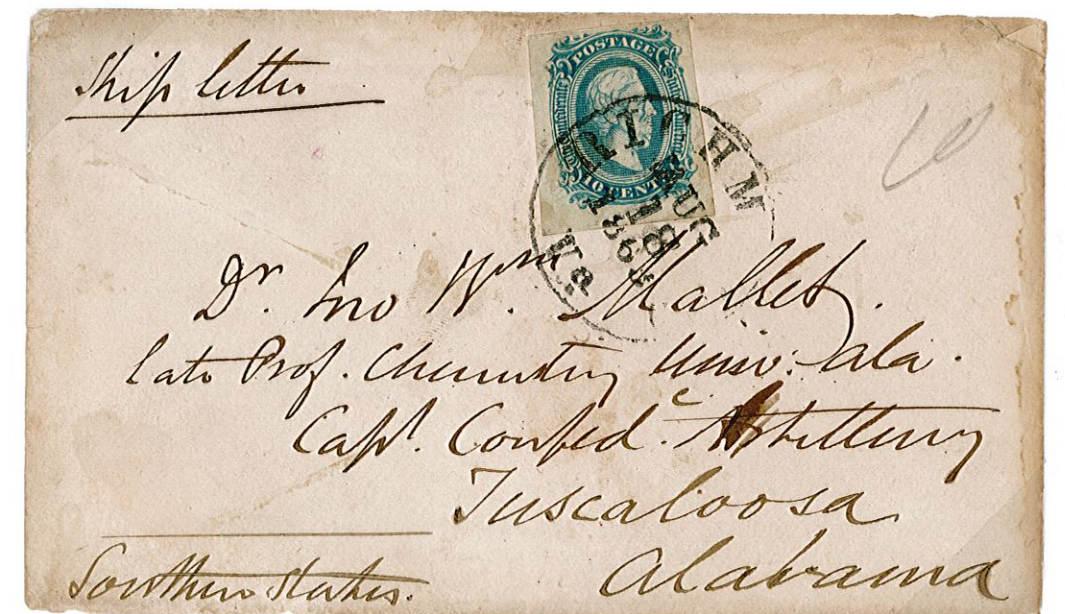 Ship letter
POSTAGE
10 CENTS
RICHM
AUG
18
186
Va
10
Dr. Jno Wm. Mallet.
late Prof. Chemistry Univ: Ala.
Capt. Confed. Artillery
Tuscaloosa
Alabama
Southern States.